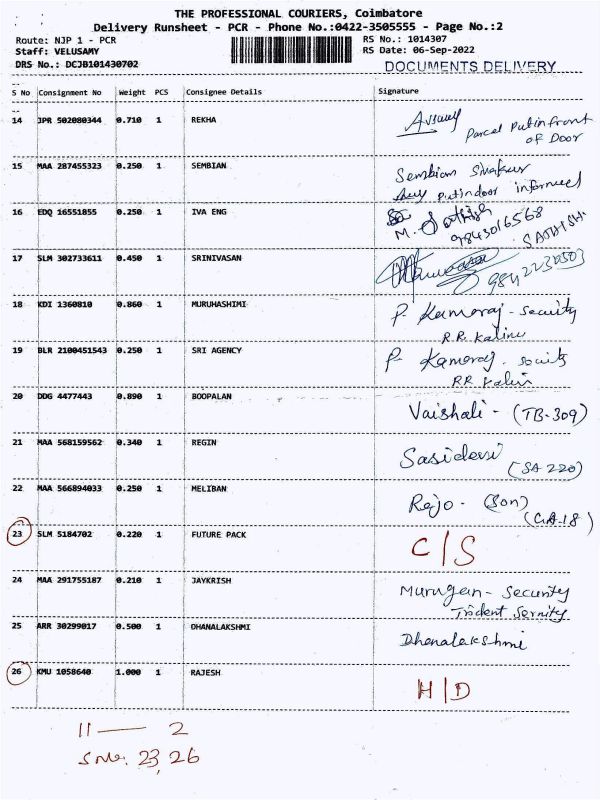 THE PROFESSIONAL COURIERS, Coimbatore
Delivery Runsheet - PCR - Phone No.:0422-3505555 - Page No.:2
Route: NJP 1 - PCR RS No.: 1014307
Staff: VELUSAMY RS Date: 06-Sep-2022
DRS No.: DCJB101430702 DOCUMENTS DELIVERY
S No Consignment No Weight PCS Consignee Details Signature
14 JPR 502080344 0.710 1 REKHA
Parcel Put in front
of Door
15 MAA 287455323 0.250 1 SEMBIAN Sembian
put indoor informed
16 EDQ 16551855 0.250 1 IVA ENG
M. Sathish
9843016568
SATHISH
17 SLM 302733611 0.450 1 SRINIVASAN
18 KDI 1360810 0.860 1 MURUHASHIMI P. Kamaraj - Security
R.R.
19 BLR 2100451543 0.250 1 SRI AGENCY P. Kamaraj -
RR
20 DDG 4477443 0.890 1 BOOPALAN Vaishali - (TB-309)
21 MAA 568159562 0.340 1 REGIN Sasidevi
(SA 220)
22 MAA 566894033 0.250 1 MELIBAN Rejo - (Son)
(GA-18)
23 SLM 5184702 0.220 1 FUTURE PACK C/S
24 MAA 291755187 0.210 1 JAYKRISH Murugan - Security
Trident
25 ARR 30299017 0.500 1 DHANALAKSHMI Dhanalakshmi
26 KMU 1058640 1.000 1 RAJESH H/D
11 — 2
S No. 23, 26